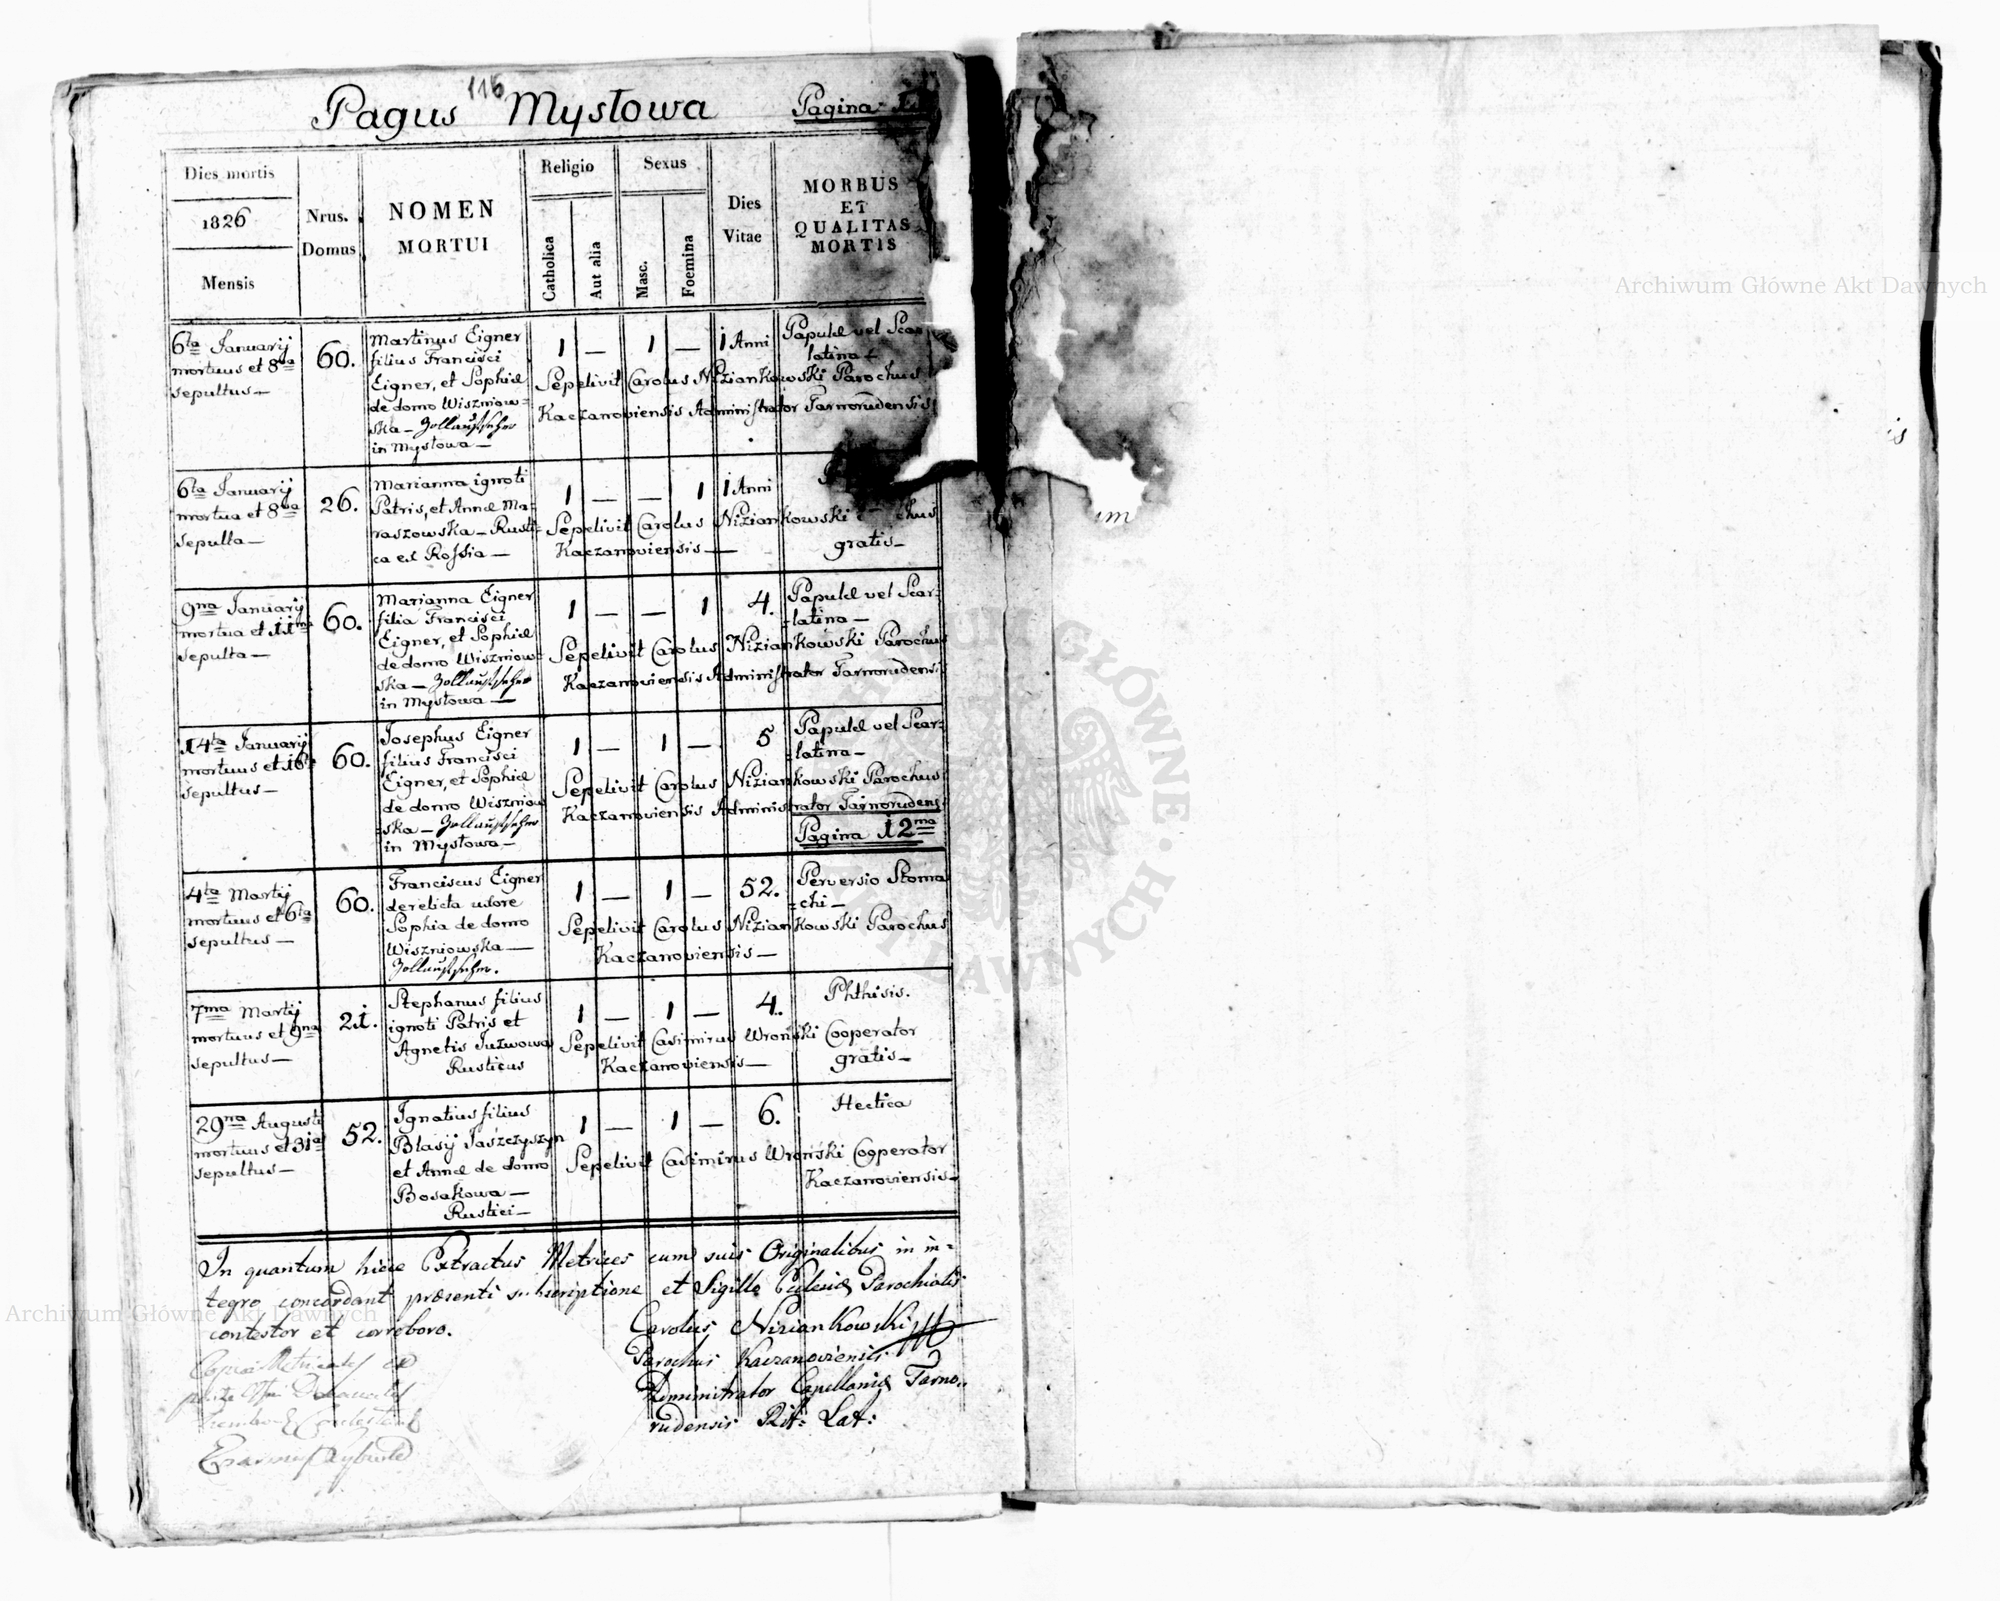 116
Pagus Mysłowa
Pagina
Dies mortis
1826
Mensis
Nrus.
Domus
NOMEN
MORTUI
Religio
Catholica
Aut alia
Sexus
Masc.
Foemina
Dies
Vitae
MORBUS
ET
QUALITAS
MORTIS
6ta Januarij
mortuus et 8va
sepultus —
60.
Martinus Eigner
filius Francisci
Eigner, et Sophiæ
de domo Wiszniow=
ska — Zollaufseher
in Mysłowa —
1 — 1 —
1 Anni
Papulæ vel Scar
latina
Sepelivit Carolus Niziankowski Parochus
Kaczanoviensis Administrator Tarnorudensis
6ta Januarij
mortua et 8va
sepulta —
26.
Marianna ignoti
Patris, et Annæ Ma=
raszowska — Rusti=
ca ex Rossia —
1 — — 1
1 Anni
Sepelivit Carolus Niziankowski chus
Kaczanoviensis —
gratis —
9na Januarij
mortua et 11ma
sepulta —
60.
Marianna Eigner
filia Francisci
Eigner, et Sophiæ
de domo Wiszniow=
ska — Zollaufseher
in Mysłowa —
1 — — 1
4.
Papulæ vel Scar=
=latina —
Sepelivit Carolus Niziankowski Parochus
Kaczanoviensis Administrator Tarnorudensis
14ta Januarij
mortuus et 16ta
sepultus —
60.
Josephus Eigner
filius Francisci
Eigner, et Sophiæ
de domo Wiszniow
=ska — Zollaufseher
in Mysłowa —
1 — 1 —
5
Papulæ vel Scar=
=latina —
Sepelivit Carolus Niziankowski Parochus
Kaczanoviensis Administrator Tarnorudens:
Pagina 12ma
4ta Martij
mortuus et 6ta
sepultus —
60.
Franciscus Eigner
derelicta uxore
Sophia de domo
Wiszniowska —
Zollaufseher.
1 — 1 —
52.
Perversio Stoma
=chi —
Sepelivit Carolus Niziankowski Parochus
Kaczanoviensis —
7ma Martij
mortuus et 9na
sepultus —
21.
Stephanus filius
ignoti Patris et
Agnetis Juzwowa
Rusticus
1 — 1 —
4.
Phthisis.
Sepelivit Casimirus Wroński Cooperator
Kaczanoviensis —
gratis —
29na Augusti
mortuus et 31a
sepultus —
52.
Ignatius filius
Blasij Jaszczyszyn
et Annæ de domo
Bosakowa —
Rustici —
1 — 1 —
6.
Hectica
Sepelivit Casimirus Wroński Cooperator
Kaczanoviensis —
In quantum hicce Extractus Metrices cum suis Originalibus in in=
tegro concordant præsenti subscriptione et Sigillo Eclesiæ Parochialis
contestor et corroboro.
Carolus Niziankowski
Parochus Kaczanoviensis
Administrator Capellaniæ Tarno=
rudensis Rit: Lat:
Archiwum Główne Akt Dawnych
Archiwum Główne Akt Dawnych
um
is